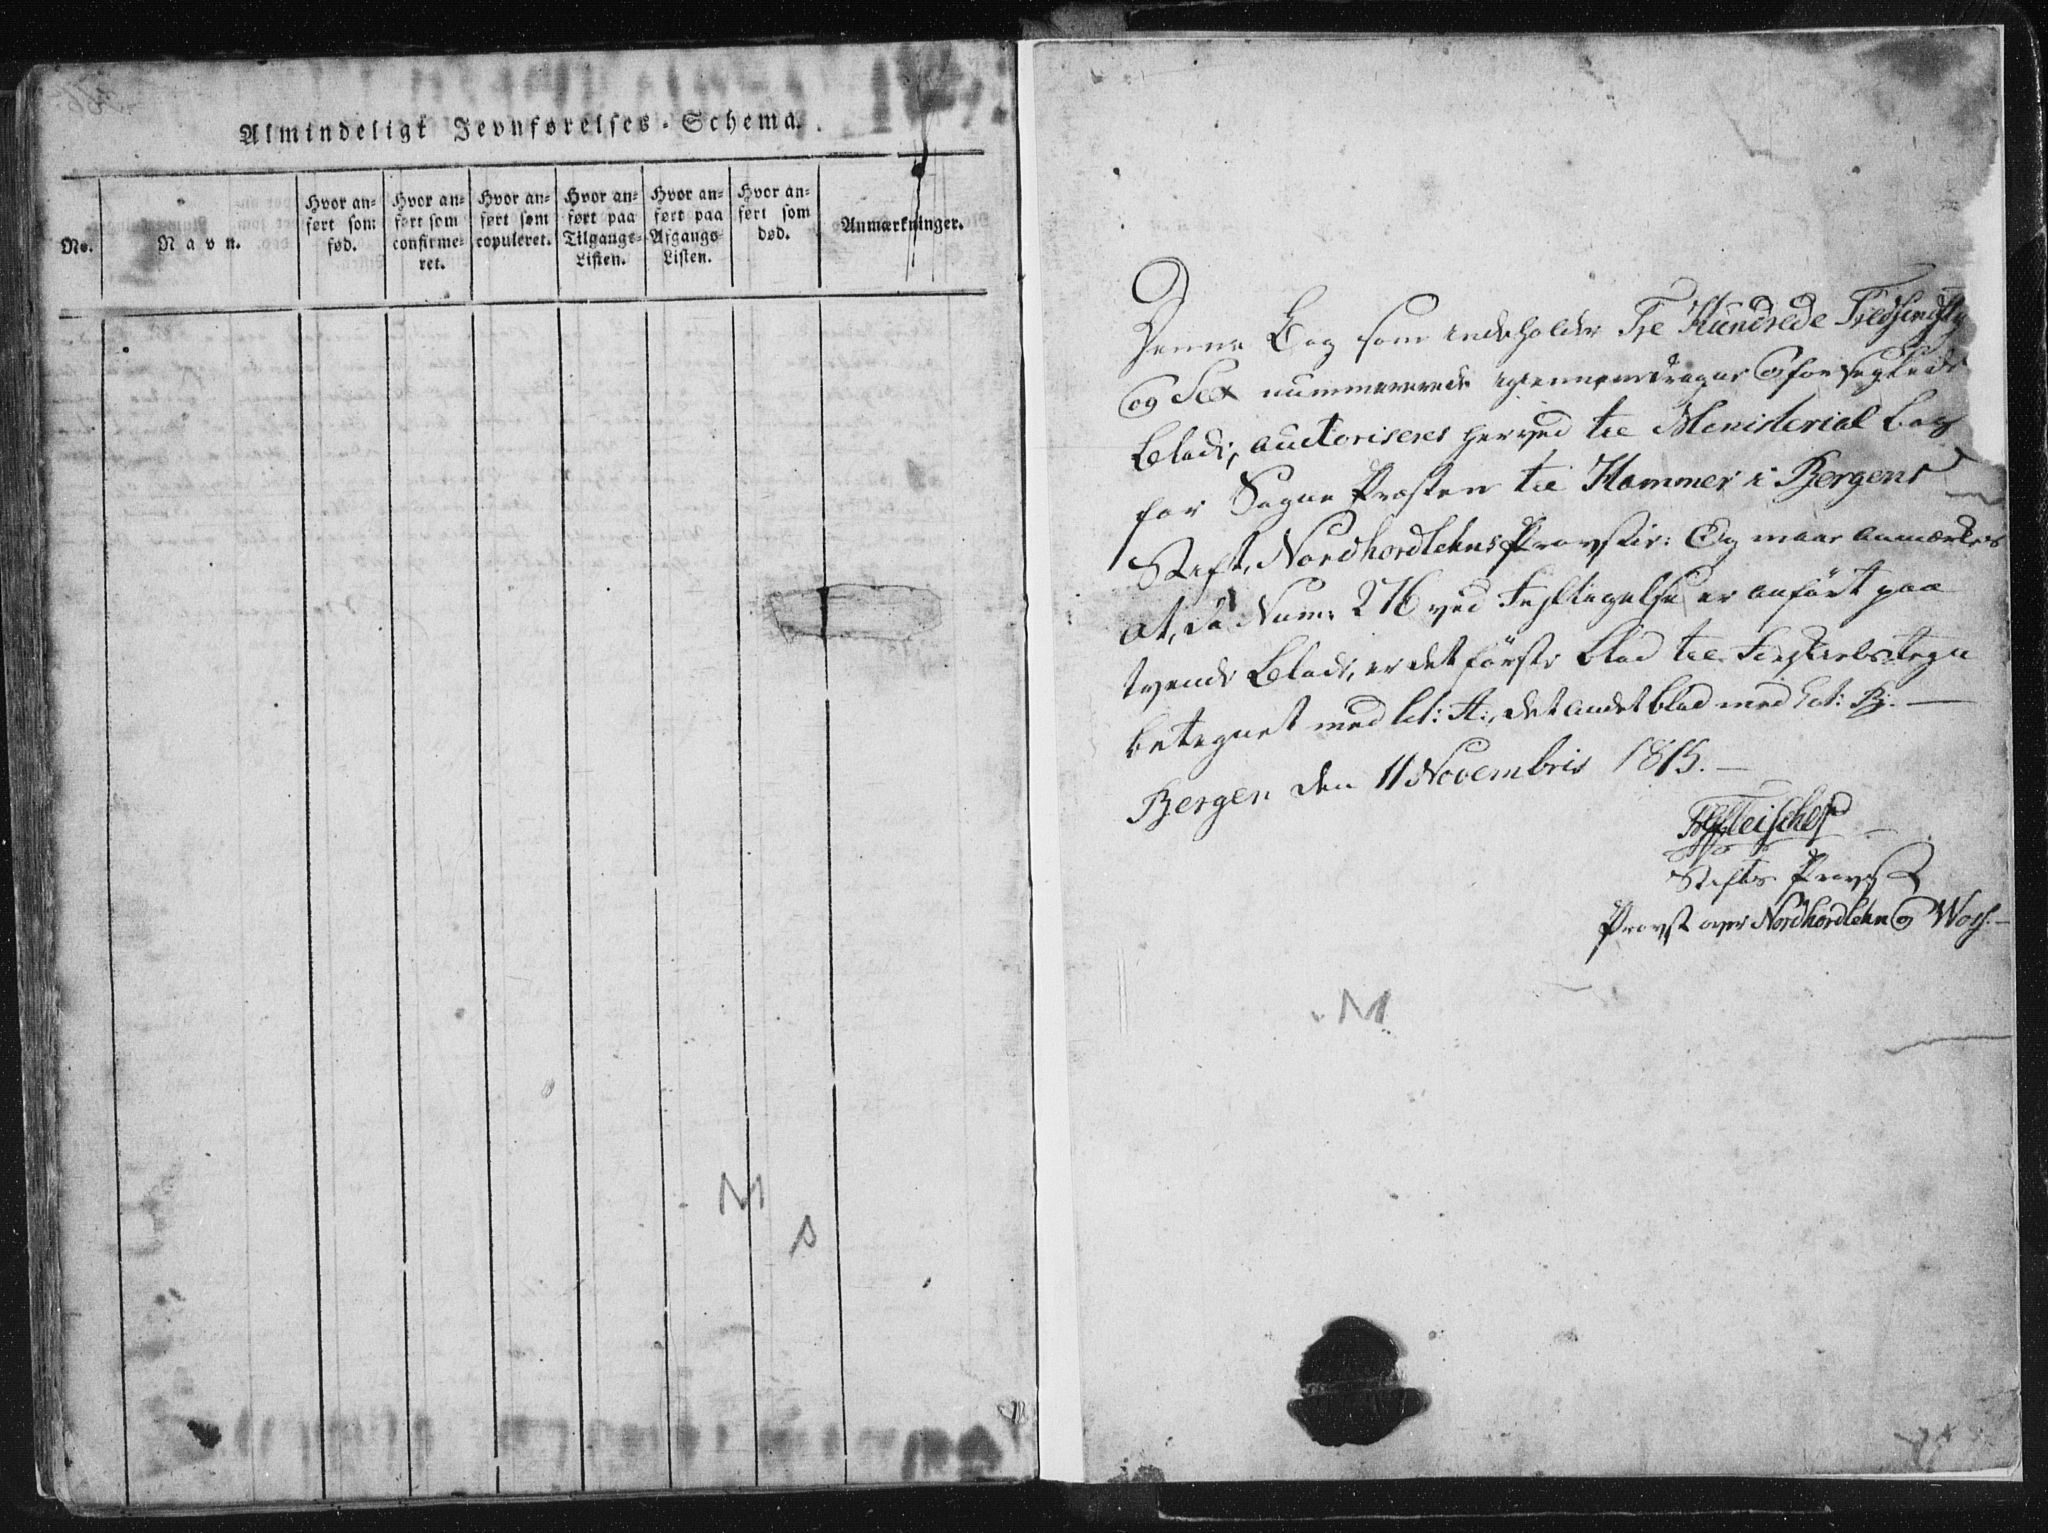 Almindeligt Jevnførelses-Schema.
No.
Navn.
Hvor an-
ført som
fød.
Hvor an-
ført som
confirme-
ret.
Hvor an-
ført som
copuleret.
Hvor an-
ført paa
Tilgangs-
Listen.
Hvor an-
ført paa
Afgangs-
Listen.
Hvor an-
ført som
død.
Anmærkninger.
M
s
Denne Bog som indeholder Tre Hundrede Tredsindsty
og Sex nummererede igiennemdragne og forseglede
Blade, auctoriseres herved til Ministerial bog
for Sogne Præsten til Hammer i Bergens
Stift, Nordhordlehns Provstie: Og maae anmærkes
at, da Num: 276 ved Fejltagelse er anført paa
tvende Blade, er det første blad til Kiendetegn
betegnet med Lit: A:, det andet blad med Lit: B:. —
Bergen den 11 Novembris 1815. —
Fleischer
Stifts Provst
Provst over Nordhordlehn og Woss. —
M